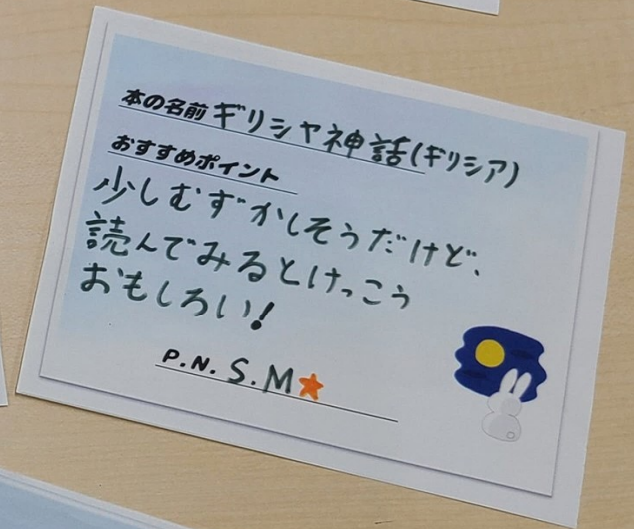 本の名前 ギリシャ神話(ギリシア)
おすすめポイント
少しむずかしそうだけど、
読んでみるとけっこう
おもしろい!
P.N. S.M★